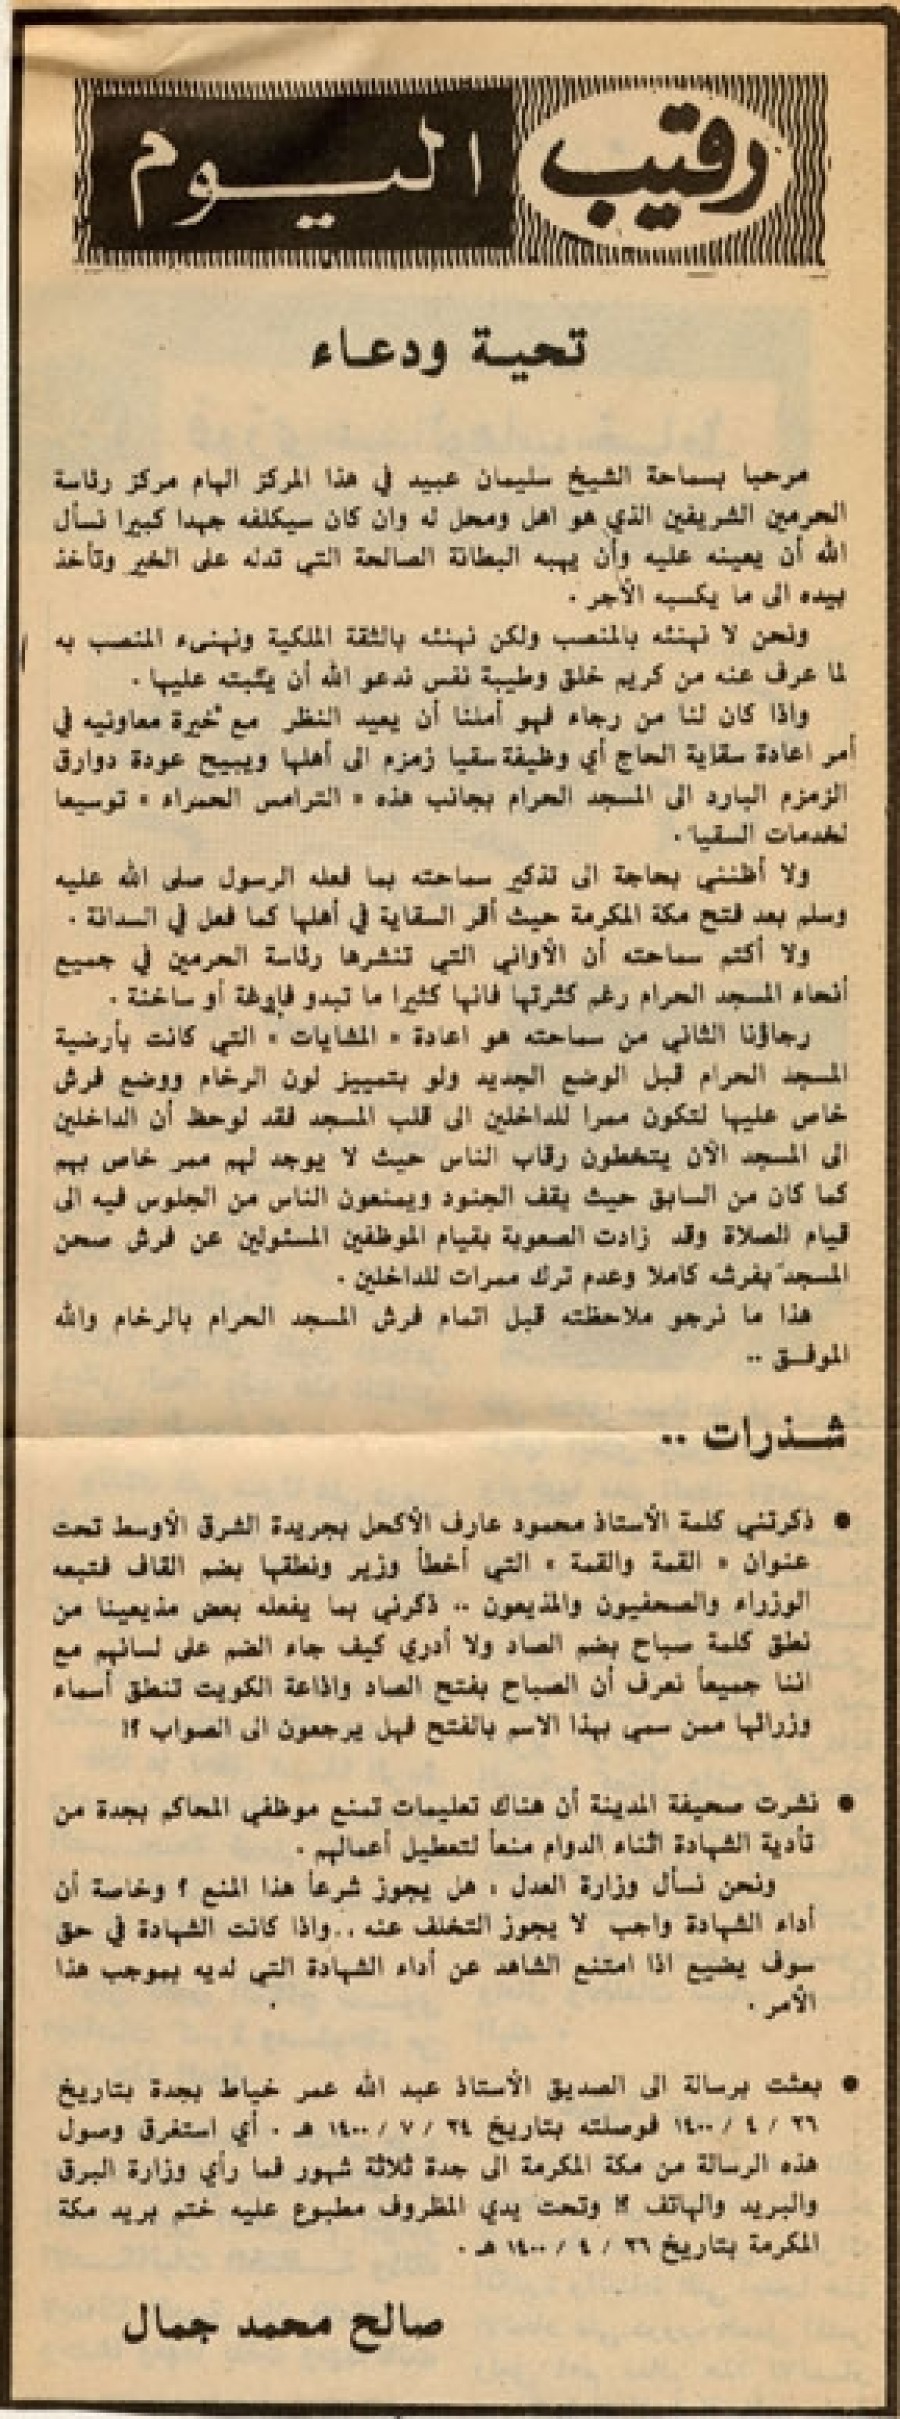 رقيب اليوم
تحية ودعاء
مرحبا بسماحة الشيخ سليمان عبيد في هذا المركز الهام مركز رئاسة
الحرمين الشريفين الذي هو اهل ومحل له وان كان سيكلفه جهدا كبيرا نسأل
الله أن يعينه عليه وأن يهبه البطانة الصالحة التي تدله على الخير وتأخذ
بيده الى ما يكسبه الأجر .
ونحن لا نهنئه بالمنصب ولكن نهنئه بالثقة الملكية ونهنىء المنصب به
لما عرف عنه من كريم خلق وطيبة نفس ندعو الله أن يثبته عليها .
واذا كان لنا من رجاء فهو أملنا أن يعيد النظر مع خيرة معاونيه في
أمر اعادة سقاية الحاج أي وظيفة سقيا زمزم الى أهلها ويبيح عودة دوارق
الزمزم البارد الى المسجد الحرام بجانب هذه « الترامس الحمراء » توسيعا
لخدمات السقيا .
ولا أظنني بحاجة الى تذكير سماحته بما فعله الرسول صلى الله عليه
وسلم بعد فتح مكة المكرمة حيث أقر السقاية في أهلها كما فعل في السدانة .
ولا أكتم سماحته أن الأواني التي تنشرها رئاسة الحرمين في جميع
أنحاء المسجد الحرام رغم كثرتها فانها كثيرا ما تبدو فارغة أو ساخنة .
رجاؤنا الثاني من سماحته هو اعادة « المشايات » التي كانت بأرضية
المسجد الحرام قبل الوضع الجديد ولو بتمييز لون الرخام ووضع فرش
خاص عليها لتكون ممرا للداخلين الى قلب المسجد فقد لوحظ أن الداخلين
الى المسجد الآن يتخطون رقاب الناس حيث لا يوجد لهم ممر خاص بهم
كما كان من السابق حيث يقف الجنود ويمنعون الناس من الجلوس فيه الى
قيام الصلاة وقد زادت الصعوبة بقيام الموظفين المسئولين عن فرش صحن
المسجد بفرشه كاملا وعدم ترك ممرات للداخلين .
هذا ما نرجو ملاحظته قبل اتمام فرش المسجد الحرام بالرخام والله
الموفق ..
شذرات ..
● ذكرتني كلمة الأستاذ محمود عارف الأكحل بجريدة الشرق الأوسط تحت
عنوان « القمة والقمة » التي أخطأ وزير ونطقها بضم القاف فتبعه
الوزراء والصحفيون والمذيعون .. ذكرني بما يفعله بعض مذيعينا من
نطق كلمة صباح بضم الصاد ولا أدري كيف جاء الضم على لسانهم مع
اننا جميعاً نعرف أن الصباح بفتح الصاد واذاعة الكويت تنطق أسماء
وزرائها ممن سمي بهذا الاسم بالفتح فهل يرجعون الى الصواب ؟!
● نشرت صحيفة المدينة أن هناك تعليمات تمنع موظفي المحاكم بجدة من
تأدية الشهادة اثناء الدوام منعاً لتعطيل أعمالهم .
ونحن نسأل وزارة العدل ، هل يجوز شرعاً هذا المنع ؟ وخاصة أن
أداء الشهادة واجب لا يجوز التخلف عنه .. واذا كانت الشهادة في حق
سوف يضيع اذا امتنع الشاهد عن أداء الشهادة التي لديه بموجب هذا
الأمر .
● بعثت برسالة الى الصديق الأستاذ عبد الله عمر خياط بجدة بتاريخ
٢٦ / ٤ / ١٤٠٠ فوصلته بتاريخ ٢٤ / ٧ / ١٤٠٠ هـ . أي استغرق وصول
هذه الرسالة من مكة المكرمة الى جدة ثلاثة شهور فما رأي وزارة البرق
والبريد والهاتف ؟! وتحت يدي المظروف مطبوع عليه ختم بريد مكة
المكرمة بتاريخ ٢٦ / ٤ / ١٤٠٠ هـ .
صالح محمد جمال